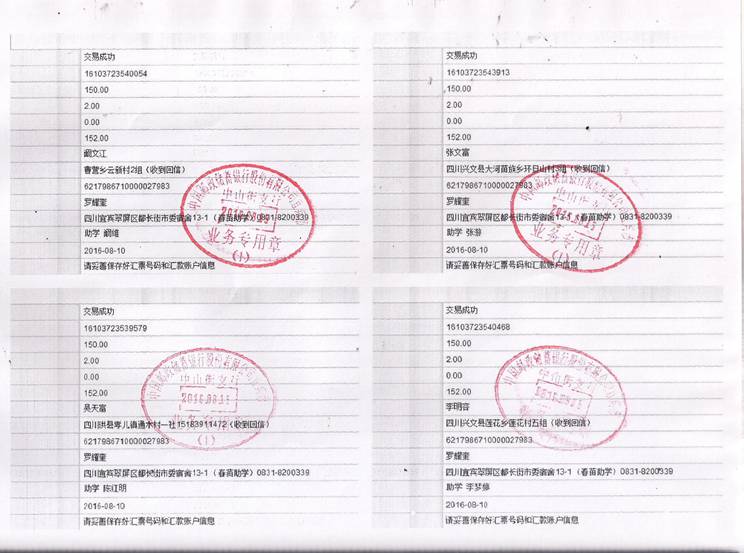 交易成功
16103723540054
150.00
2.00
0.00
152.00
阚文江
曹营乡云新村2组（收到回信）
6217986710000027983
罗耀奎
四川宜宾翠屏区都长街市委宿舍13-1（春苗助学）0831-8200339
助学 阚雄
2016-08-10
请妥善保存好汇票号码和汇款账户信息
中国邮政储蓄银行股份有限公司
中山街支行
2016.08.15
业务专用章
(1)
交易成功
16103723543913
150.00
2.00
0.00
152.00
张文富
四川兴文县大河苗族乡环日山村3组（收到回信）
6217986710000027983
罗耀奎
四川宜宾翠屏区都长街市委宿舍13-1（春苗助学）0831-8200339
助学 张游
2016-08-10
请妥善保存好汇票号码和汇款账户信息
中国邮政储蓄银行股份有限公司
中山街支行
2016.08.15
业务专用章
(1)
交易成功
16103723539579
150.00
2.00
0.00
152.00
吴天富
四川珙县孝儿镇通水村一社15183911472（收到回信）
6217986710000027983
罗耀奎
四川宜宾翠屏区都长街市委宿舍13-1（春苗助学）0831-8200339
助学 陈红明
2016-08-10
请妥善保存好汇票号码和汇款账户信息
中国邮政储蓄银行股份有限公司
中山街支行
2016.08.15
业务专用章
(1)
交易成功
16103723540468
150.00
2.00
0.00
152.00
李明容
四川兴文县莲花乡莲花村五组（收到回信）
6217986710000027983
罗耀奎
四川宜宾翠屏区都长街市委宿舍13-1（春苗助学）0831-8200339
助学 李梦修
2016-08-10
请妥善保存好汇票号码和汇款账户信息
中国邮政储蓄银行股份有限公司
中山街支行
2016.08.15